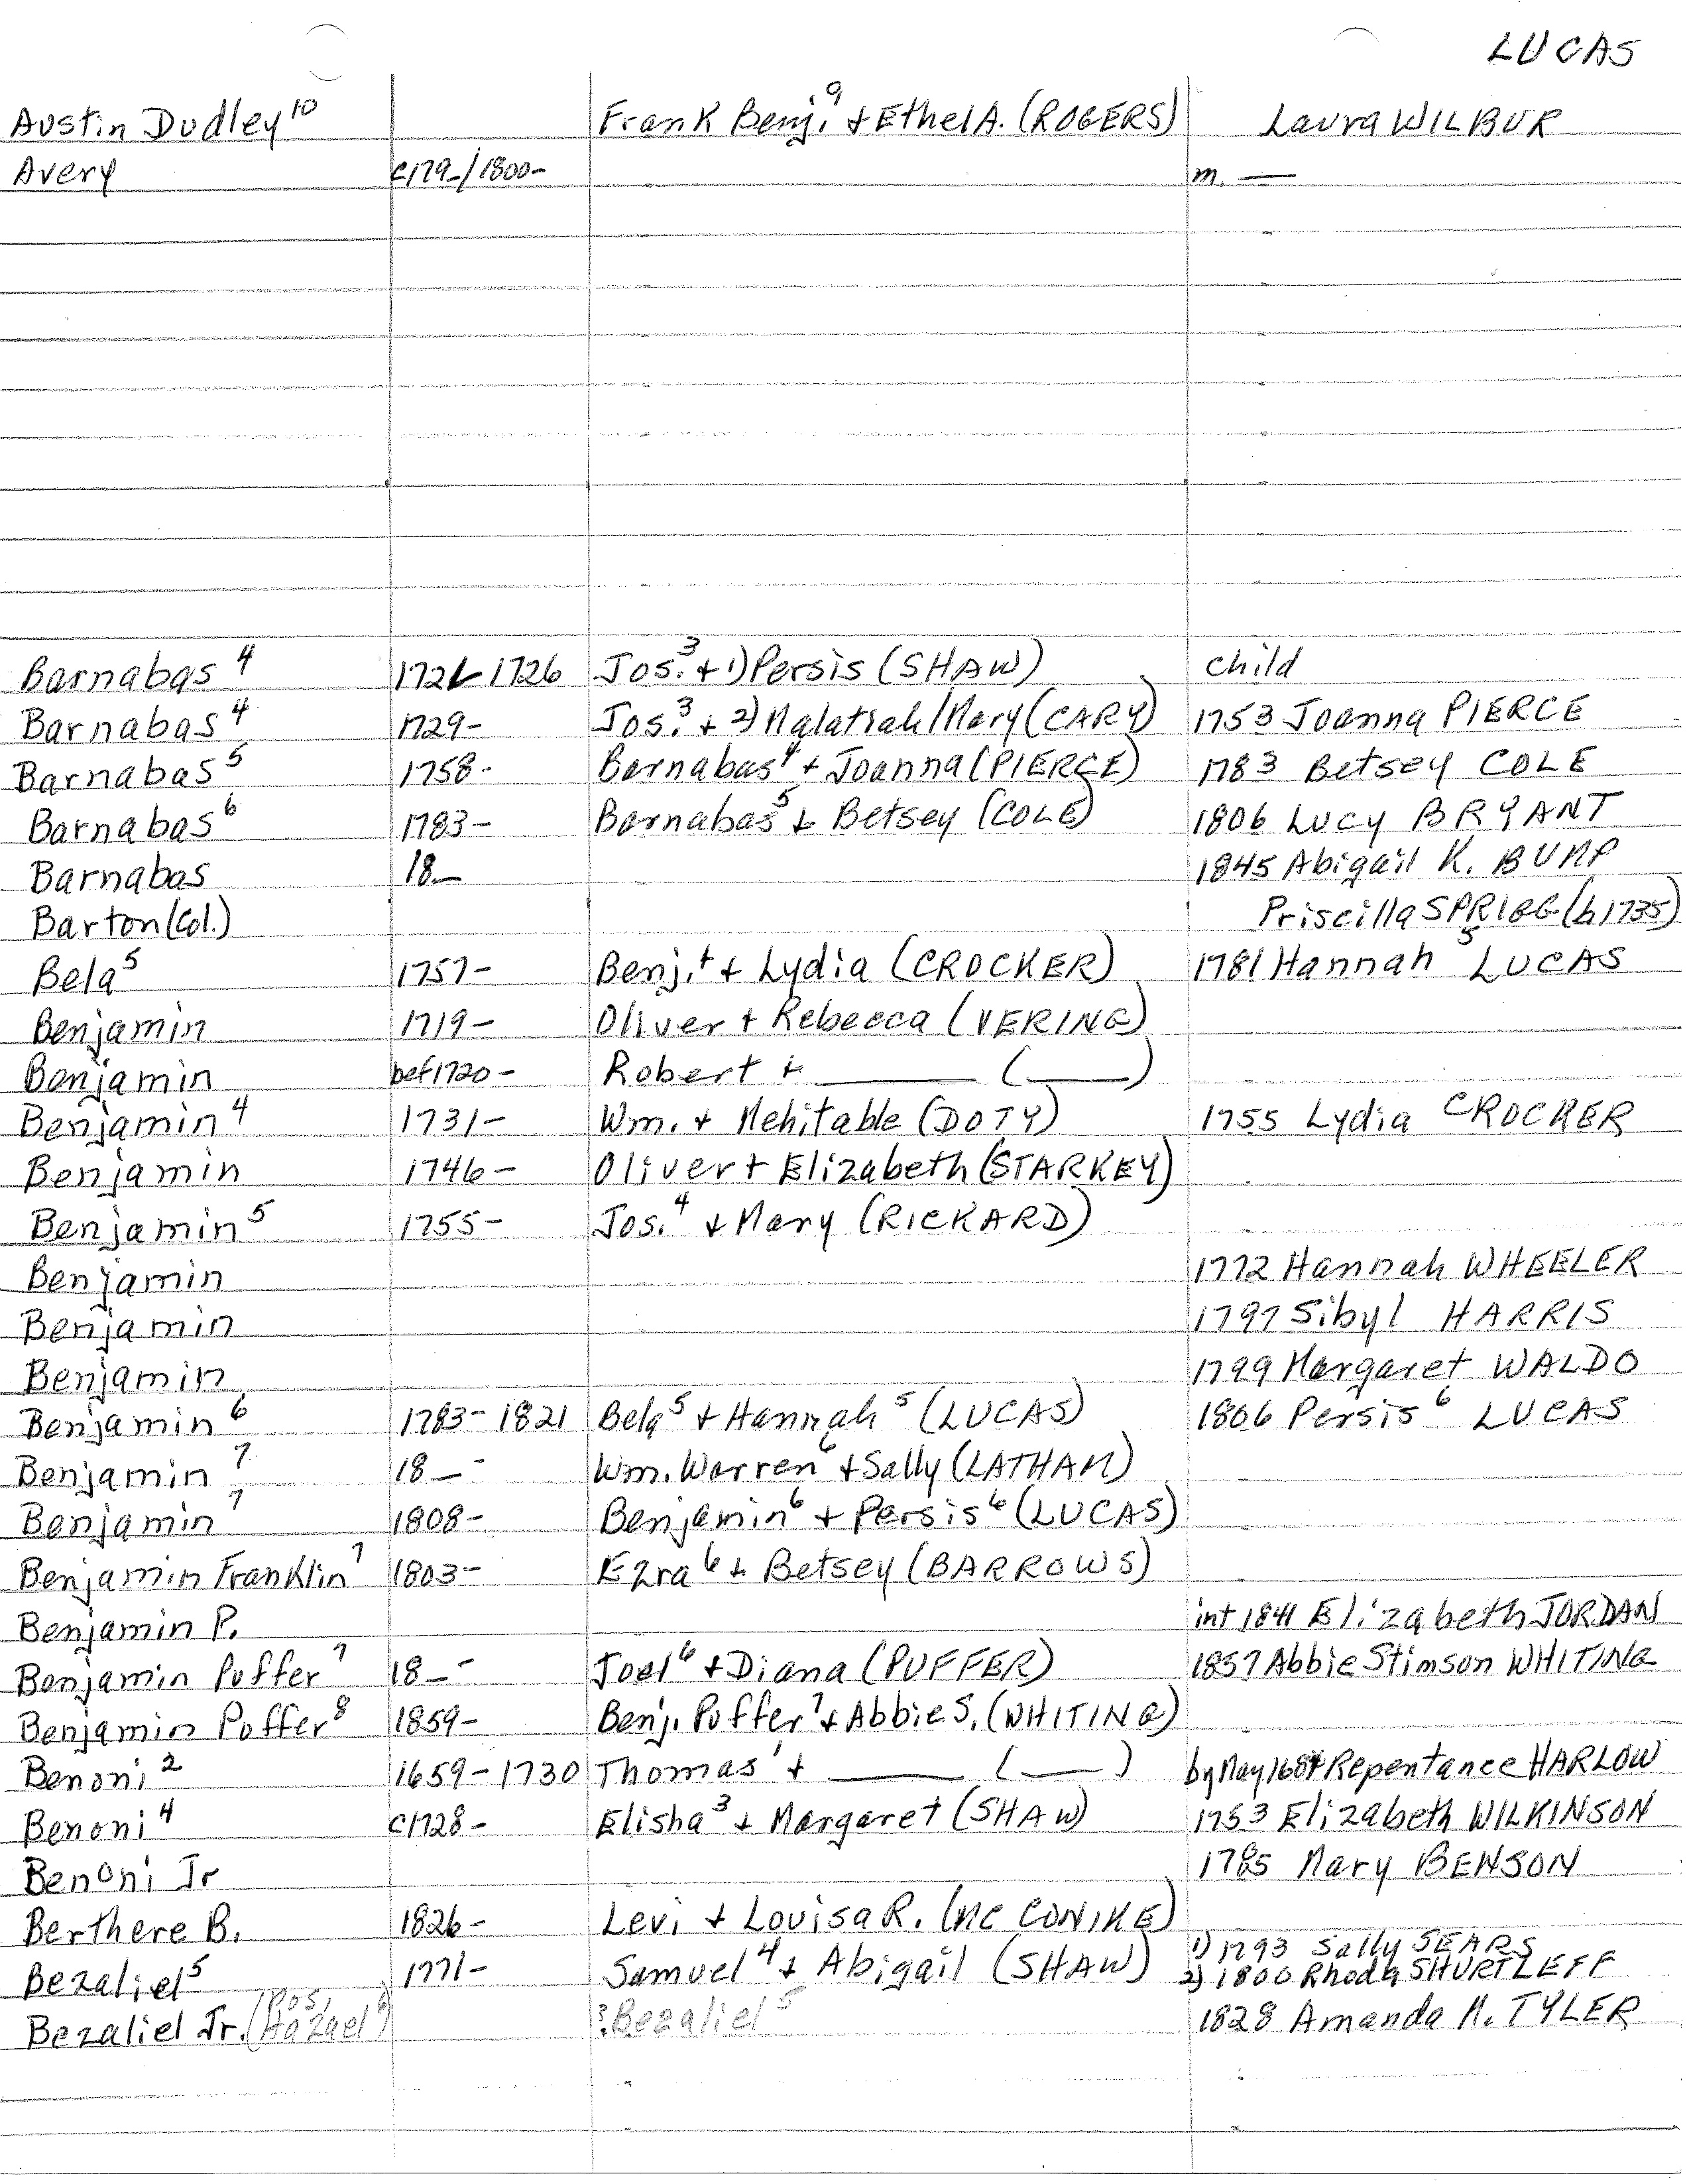 LUCAS
Austin Dudley¹⁰ Frank Benj.⁹ + Ethel A. (ROGERS) Laura WILBUR
Avery c179-/1800- m. —
Barnabas⁴ 1726-1726 Jos.³ + 1) Persis (SHAW) child
Barnabas⁴ 1729- Jos.³ + 2) Malatiah/Mary (CARY) 1753 Joanna PIERCE
Barnabas⁵ 1758- Barnabas⁴ + Joanna (PIERCE) 1783 Betsey COLE
Barnabas⁶ 1783- Barnabas⁵ + Betsey (COLE) 1806 Lucy BRYANT
Barnabas 18— 1845 Abigail K. BUMP
Barton (Col.) Priscilla SPRIGG (b1735)
Bela⁵ 1757- Benj.⁴ + Lydia (CROCKER) 1781 Hannah⁵ LUCAS
Benjamin 1719- Oliver + Rebecca (VERING)
Benjamin bef1720- Robert + ____ (____)
Benjamin⁴ 1731- Wm. + Mehitable (DOTY) 1755 Lydia CROCKER
Benjamin 1746- Oliver + Elizabeth (STARKEY)
Benjamin⁵ 1755- Jos.⁴ + Mary (RICKARD)
Benjamin 1772 Hannah WHEELER
Benjamin 1797 Sibyl HARRIS
Benjamin 1799 Margaret WALDO
Benjamin⁶ 1783-1821 Bela⁵ + Hannah⁵ (LUCAS) 1806 Persis⁶ LUCAS
Benjamin⁷ 18—- Wm. Warren⁶ + Sally (LATHAM)
Benjamin⁷ 1808- Benjamin⁶ + Persis⁶ (LUCAS)
Benjamin Franklin⁷ 1803- Ezra⁶ + Betsey (BARROWS)
Benjamin P. int 1841 Elizabeth JORDAN
Benjamin Puffer⁷ 18—- Joel⁶ + Diana (PUFFER) 1857 Abbie Stimson WHITING
Benjamin Puffer⁸ 1859- Benj. Puffer⁷ + Abbie S. (WHITING)
Benoni² 1659-1730 Thomas¹ + ____ (____) by May 1684 Repentance HARLOW
Benoni⁴ c1728- Elisha³ + Margaret (SHAW) 1753 Elizabeth WILKINSON
Benoni Jr 1785 Mary BENSON
Berthere B. 1826- Levi + Louisa R. (MC CONIKE)
Bezaliel⁵ 1771- Samuel⁴ + Abigail (SHAW) 1) 1793 Sally SEARS
2) 1800 Rhoda SHURTLEFF
Bezaliel Jr. (pos. Hazael⁶) ?Bezaliel⁵ 1828 Amanda M. TYLER